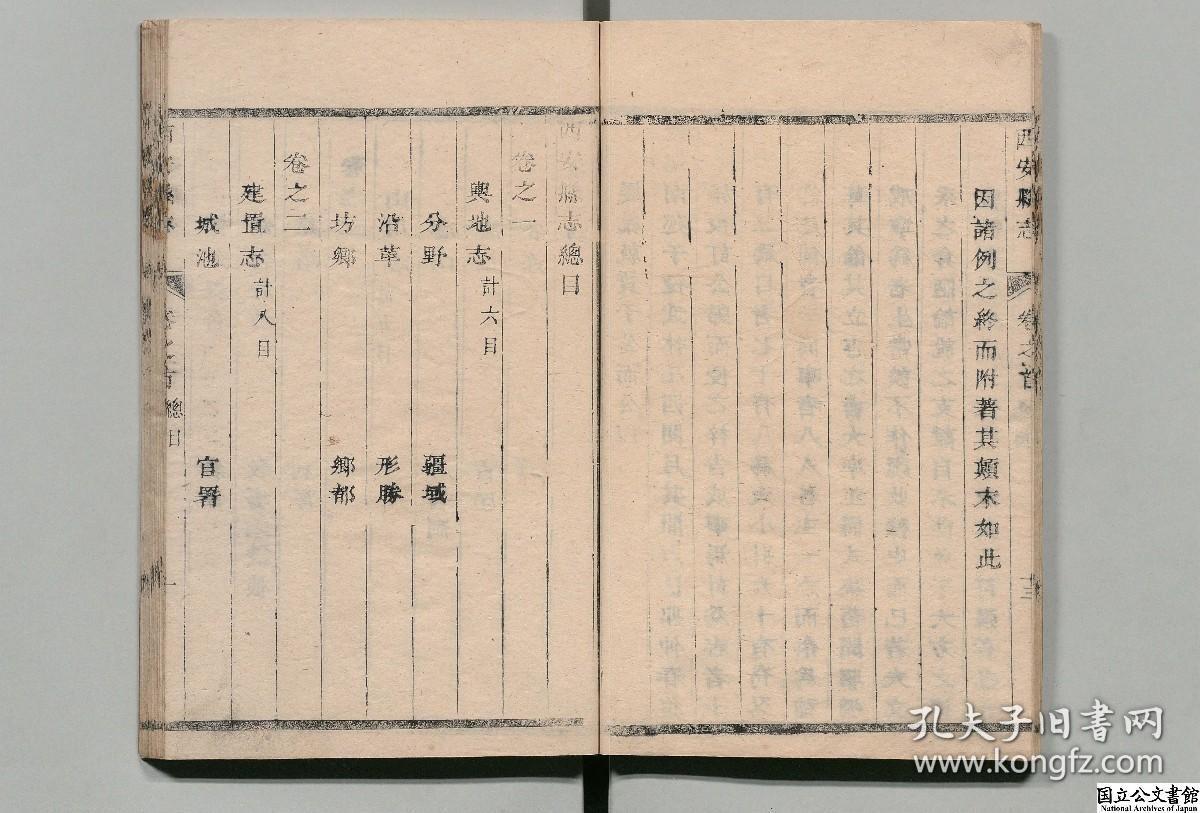 西安縣志
卷之首
十三
因諸例之終而附著其顛末如此
西安縣志總目
卷之一
輿地志計六目
分野
疆域
沿革
形勝
坊鄉
鄉都
卷之二
建置志計八目
城池
官署
卷之首總目
一
孔夫子旧书网
www.kongfz.com
国立公文書館
National Archives of Japan